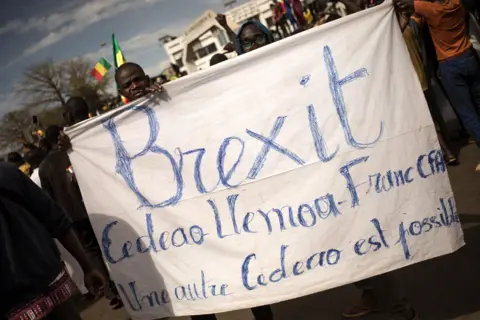 Brexit
Cedeao-Uemoa-Franc CFA
Une autre Cedeao est possible